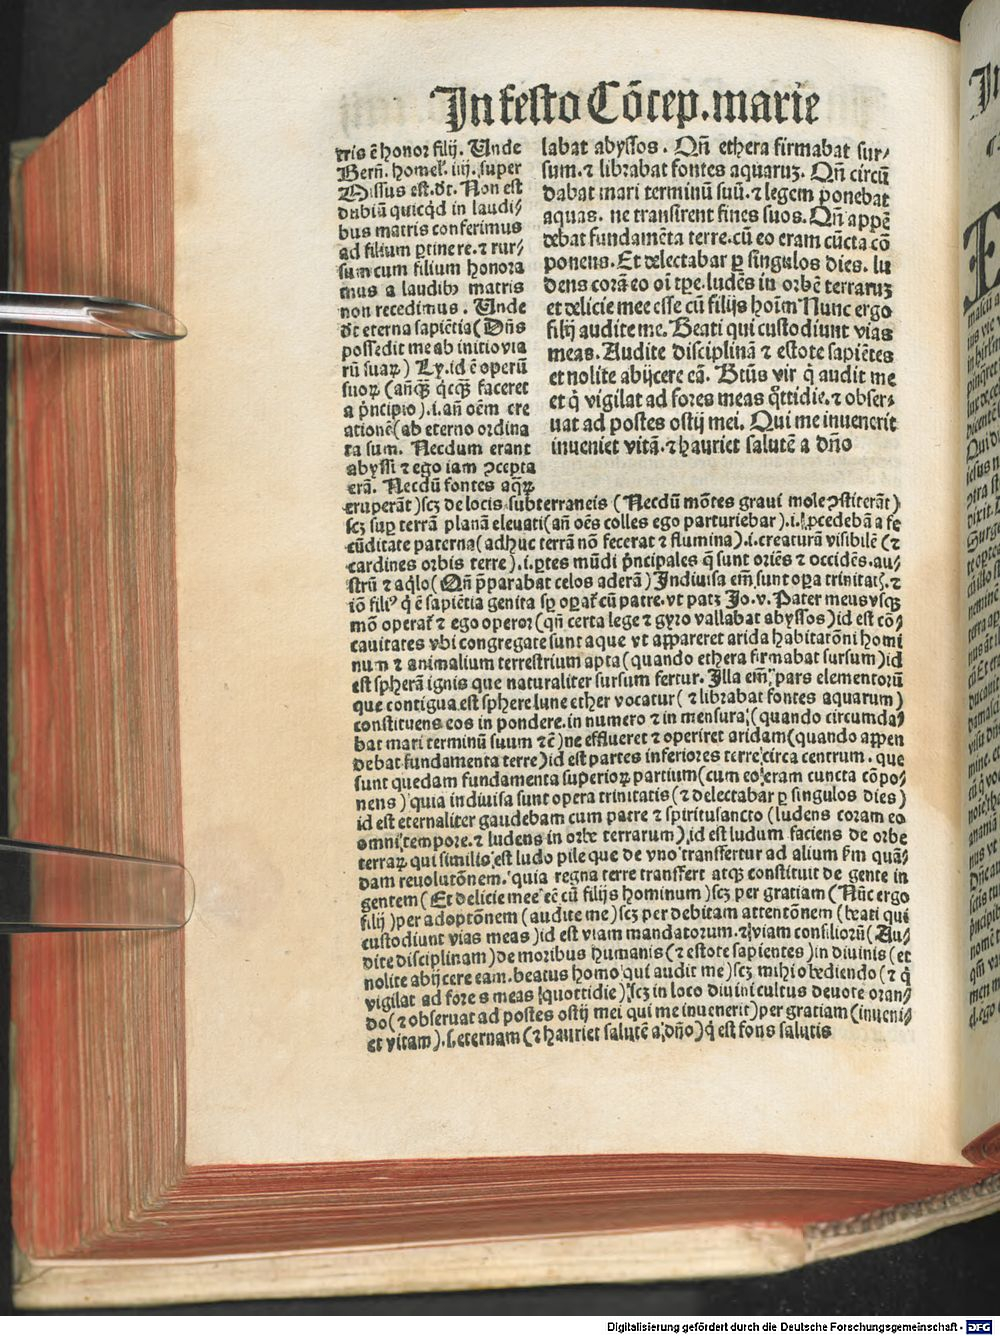 In festo Cōcep. marie
tris ē honor filij. Unde
Bern̄. homel̕. iiij. super
Missus est. d̄t. Non est
dubiū quicq̇d in laudi⸗
bus matris conferimus
ad filium ꝑtinere. ⁊ rur⸗
sum cum filium honora
mus a laudibꝰ matris
non recedimus. Unde
d̄t eterna sapiētia (Dn̄s
possedit me ab initio via
rū suaꝝ) Ly. id ē operū
suoꝝ (anq̄ꝫ q̇cq̄ꝫ faceret
a pͥncipio) .i. an̄ oēm cre
ationē (ab eterno ordina
ta sum. Necdum erant
abyssi ⁊ ego iam ꝯcepta
erā. Necdū fontes aqꝝ
labat abyssos. Qn̄ ethera firmabat sur⸗
sum. ⁊ librabat fontes aquaruꝫ. Qn̄ circū
dabat mari terminū suū. ⁊ legem ponebat
aquas. ne transirent fines suos. Qn̄ appē
debat fundamēta terre. cū eo eram cūcta cō
ponens. Et delectabar ꝑ singulos dies. lu
dens corā eo oī tꝑe. ludēs in orbē terraruꝫ
et delicie mee esse cū filijs hoīm Nunc ergo
filij audite me. Beati qui custodiunt vias
meas. Audite disciplinā ⁊ estote sapiētes
et nolite abijcere eā. Btūs vir q̇ audit me
et q̇ vigilat ad fores meas q̊ttidie. ⁊ obser⸗
uat ad postes ostij mei. Qui me inuenerit
inueniet vitā. ⁊ hauriet salutē a dn̄o
eruperāt) scꝫ de locis subterraneis (Necdū mōtes graui mole ꝯstiterāt)
scꝫ suꝑ terrā planā eleuati (an̄ oēs colles ego parturiebar) .i. ꝓcedebā a fe
cūditate paterna (adhuc terrā nō fecerat ⁊ flumina) .i. creaturā visibilē (⁊
cardines orbis terre) .i. ꝑtes mūdi pͥncipales q̄ sunt oriēs ⁊ occidēs. au⸗
strū ⁊ aq̇lo (Qn̄ p̄parabat celos aderā) Indiuisa em̄ sunt oꝑa trinitatꝭ. ⁊
iō filiꝰ q̇ ē sapiētia genita sꝑ oꝑat̕ cū patre. vt patꝫ Jo. v. Pater meus vsqꝫ
mō operat̕ ⁊ ego operor (qn̄ certa lege ⁊ gyro vallabat abyssos) id est cō⸗
cauitates vbi congregate sunt aque vt appareret arida habitatōni homi
num ⁊ animalium terrestrium apta (quando ethera firmabat sursum) id
est spherā ignis que naturaliter sursum fertur. Illa em̄ pars elementorū
que contigua est sphere lune ether vocatur (⁊ librabat fontes aquarum)
constituens eos in pondere. in numero ⁊ in mensura (quando circumda⸗
bat mari terminū suum ⁊c̄) ne efflueret ⁊ operiret aridam (quando appen
debat fundamenta terre) id est partes inferiores terre circa centrum. que
sunt quedam fundamenta superioꝝ partium (cum eo eram cuncta cōpo⸗
nens) quia indiuisa sunt opera trinitatis (⁊ delectabar ꝑ singulos dies)
id est eternaliter gaudebam cum patre ⁊ spiritusancto (ludens coram eo
omni tempore. ⁊ ludens in orbe terrarum) id est ludum faciens de orbe
terraꝝ qui similis est ludo pile que de vno transfertur ad alium ẜm quā⸗
dam reuolutōnem. quia regna terre transfert atqꝫ constituit de gente in
gentem (Et delicie mee eē cū filijs hominum) scꝫ per gratiam (Nūc ergo
filij) per adoptōnem (audite me) scꝫ per debitam attentōnem (beati qui
custodiunt vias meas) id est viam mandatorum. ⁊ viam consiliorū (Au⸗
dite disciplinam) de moribus humanis (⁊ estote sapientes) in diuinis (et
nolite abijcere eam. beatus homo qui audit me) scꝫ mihi obediendo (⁊ q̇
vigilat ad fores meas quottidie) scꝫ in loco diuini cultus deuote oran⸗
do (⁊ obseruat ad postes ostij mei qui me inuenerit) per gratiam (inueni⸗
et vitam) .s. eternam (⁊ hauriet salutē a dn̄o) q̇ est fons salutis
Digitalisierung gefördert durch die Deutsche Forschungsgemeinschaft - DFG